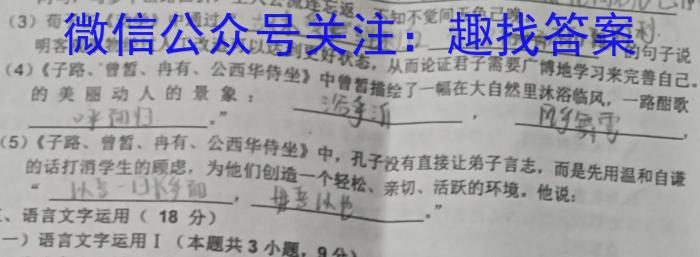 微信公众号关注：趣找答案
(3) 荀
的句子说
明客 达到更好状态，从而论证君子需要广博地学习来完善自己。
(4)《子路、曾皙、冉有、公西华侍坐》中曾皙描绘了一幅在大自然里沐浴临风，一路酣歌
的美丽动人的景象：浴乎沂，风乎舞雩，
咏而归。”
(5)《子路、曾皙、冉有、公西华侍坐》中，孔子没有直接让弟子言志，而是先用温和自谦
的话打消学生的顾虑，为他们创造一个轻松、亲切、活跃的环境。他说：
“以吾一日长乎尔，毋吾以也。”
、语言文字运用（18 分）
一）语言文字运用Ⅰ（本题共 3 小题，9分）